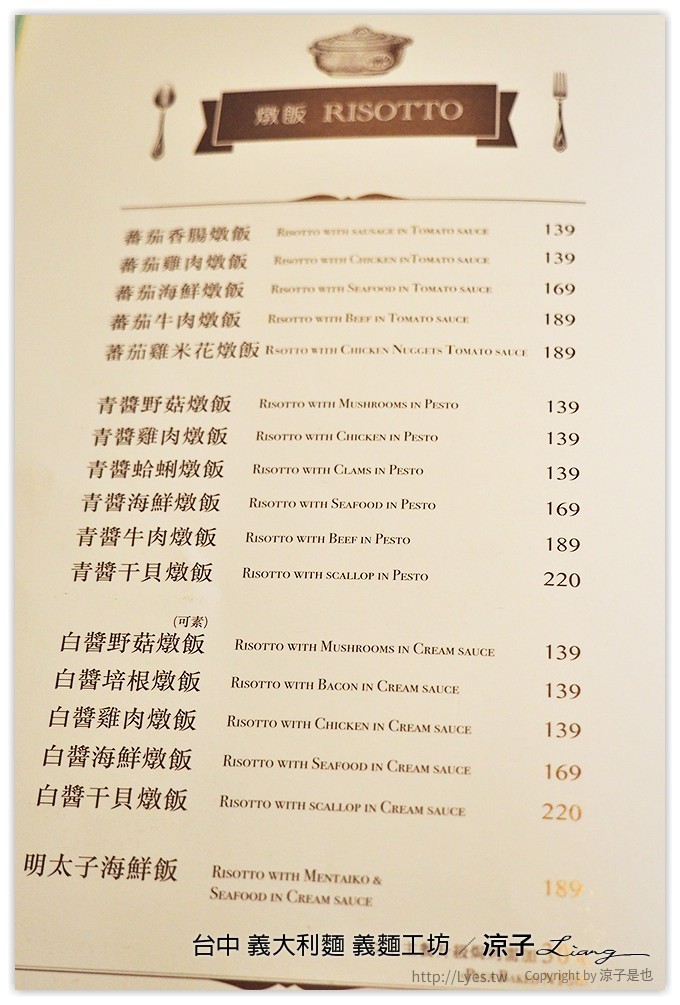 燉飯 RISOTTO
蕃茄香腸燉飯 RISOTTO WITH SAUSAGE IN TOMATO SAUCE 139
蕃茄雞肉燉飯 RISOTTO WITH CHICKEN IN TOMATO SAUCE 139
蕃茄海鮮燉飯 RISOTTO WITH SEAFOOD IN TOMATO SAUCE 169
蕃茄牛肉燉飯 RISOTTO WITH BEEF IN TOMATO SAUCE 189
蕃茄雞米花燉飯 RSOTTO WITH CHICKEN NUGGETS TOMATO SAUCE 189
青醬野菇燉飯 RISOTTO WITH MUSHROOMS IN PESTO 139
青醬雞肉燉飯 RISOTTO WITH CHICKEN IN PESTO 139
青醬蛤蜊燉飯 RISOTTO WITH CLAMS IN PESTO 139
青醬海鮮燉飯 RISOTTO WITH SEAFOOD IN PESTO 169
青醬牛肉燉飯 RISOTTO WITH BEEF IN PESTO 189
青醬干貝燉飯 RISOTTO WITH SCALLOP IN PESTO 220
(可素)
白醬野菇燉飯 RISOTTO WITH MUSHROOMS IN CREAM SAUCE 139
白醬培根燉飯 RISOTTO WITH BACON IN CREAM SAUCE 139
白醬雞肉燉飯 RISOTTO WITH CHICKEN IN CREAM SAUCE 139
白醬海鮮燉飯 RISOTTO WITH SEAFOOD IN CREAM SAUCE 169
白醬干貝燉飯 RISOTTO WITH SCALLOP IN CREAM SAUCE 220
明太子海鮮飯 RISOTTO WITH MENTAIKO &
SEAFOOD IN CREAM SAUCE 189
台中 義大利麵 義麵工坊 / 涼子 Liang
http://Lyes.tw Copyright by 涼子是也